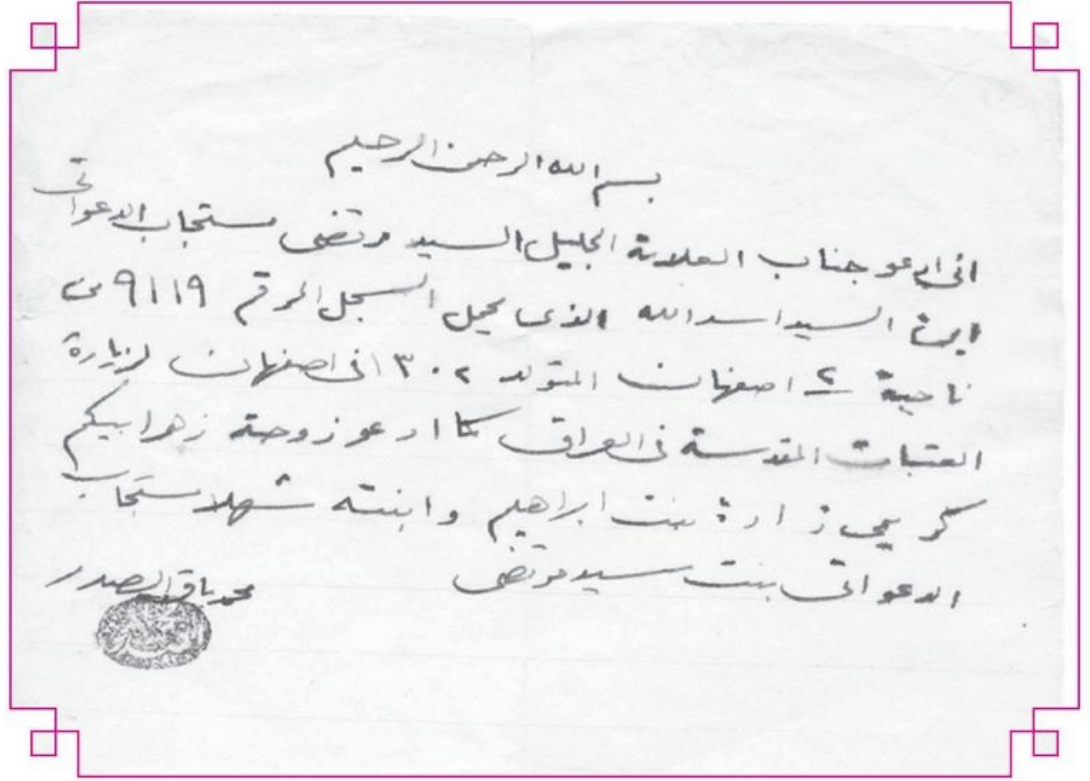 بسم الله الرحمن الرحيم
اني ادعو جناب العلامة الجليل السيد مرتضى مستجاب الدعواتي
ابن السيد اسد الله الذي يحمل السجل المرقم ٩١١٩ من
ناحية ٢ اصفهان المتولد ١٣٠٢ في اصفهان لزيارة
العتبات المقدسة في العراق كما ادعو زوجته زهرا بيكم
كريمي زاده بنت ابراهيم وابنته شهلا مستجاب
الدعواتي بنت سيد مرتضى
محمد باقر الصدر